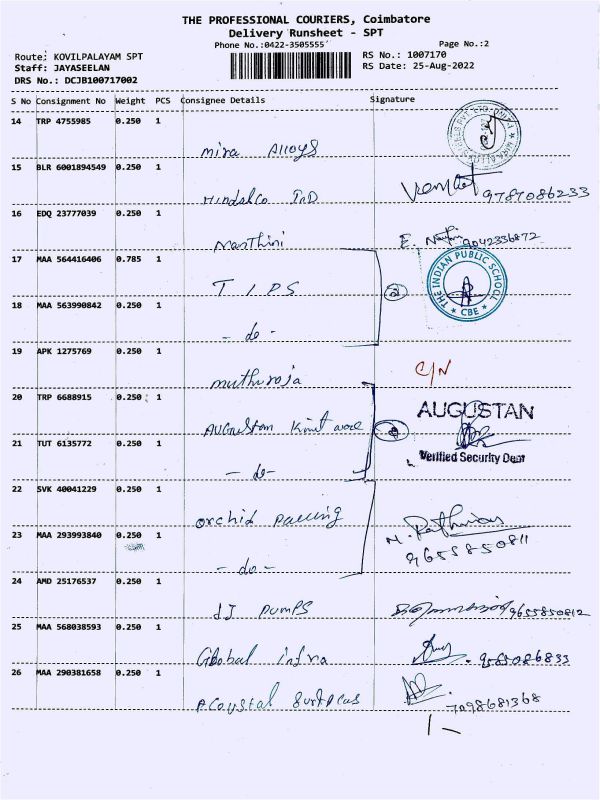 THE PROFESSIONAL COURIERS, Coimbatore
Delivery Runsheet - SPT
Phone No.:0422-3505555
Page No.:2
Route: KOVILPALAYAM SPT
Staff: JAYASEELAN
DRS No.: DCJB100717002
RS No.: 1007170
RS Date: 25-Aug-2022
S No Consignment No Weight PCS Consignee Details Signature
14 TRP 4755985 0.250 1
Mira Alloys
15 BLR 6001894549 0.250 1
Hindalco InD
9787086233
16 EDQ 23777039 0.250 1
Nanthini
E. 9042336872
17 MAA 564416406 0.785 1
TIPS
2
THE INDIAN PUBLIC SCHOOL
CBE
18 MAA 563990842 0.250 1
- do -
19 APK 1275769 0.250 1
muthuraja
C/N
20 TRP 6688915 0.250 1
Augustan Knit
AUGUSTAN
21 TUT 6135772 0.250 1
- do -
Verified Security Dept
22 SVK 40041229 0.250 1
orchid
23 MAA 293993840 0.250 1
- do -
9655850811
24 AMD 25176537 0.250 1
PUMPS
9655850812
25 MAA 568038593 0.250 1
Global infra
9585086833
26 MAA 290381658 0.250 1
7098681368